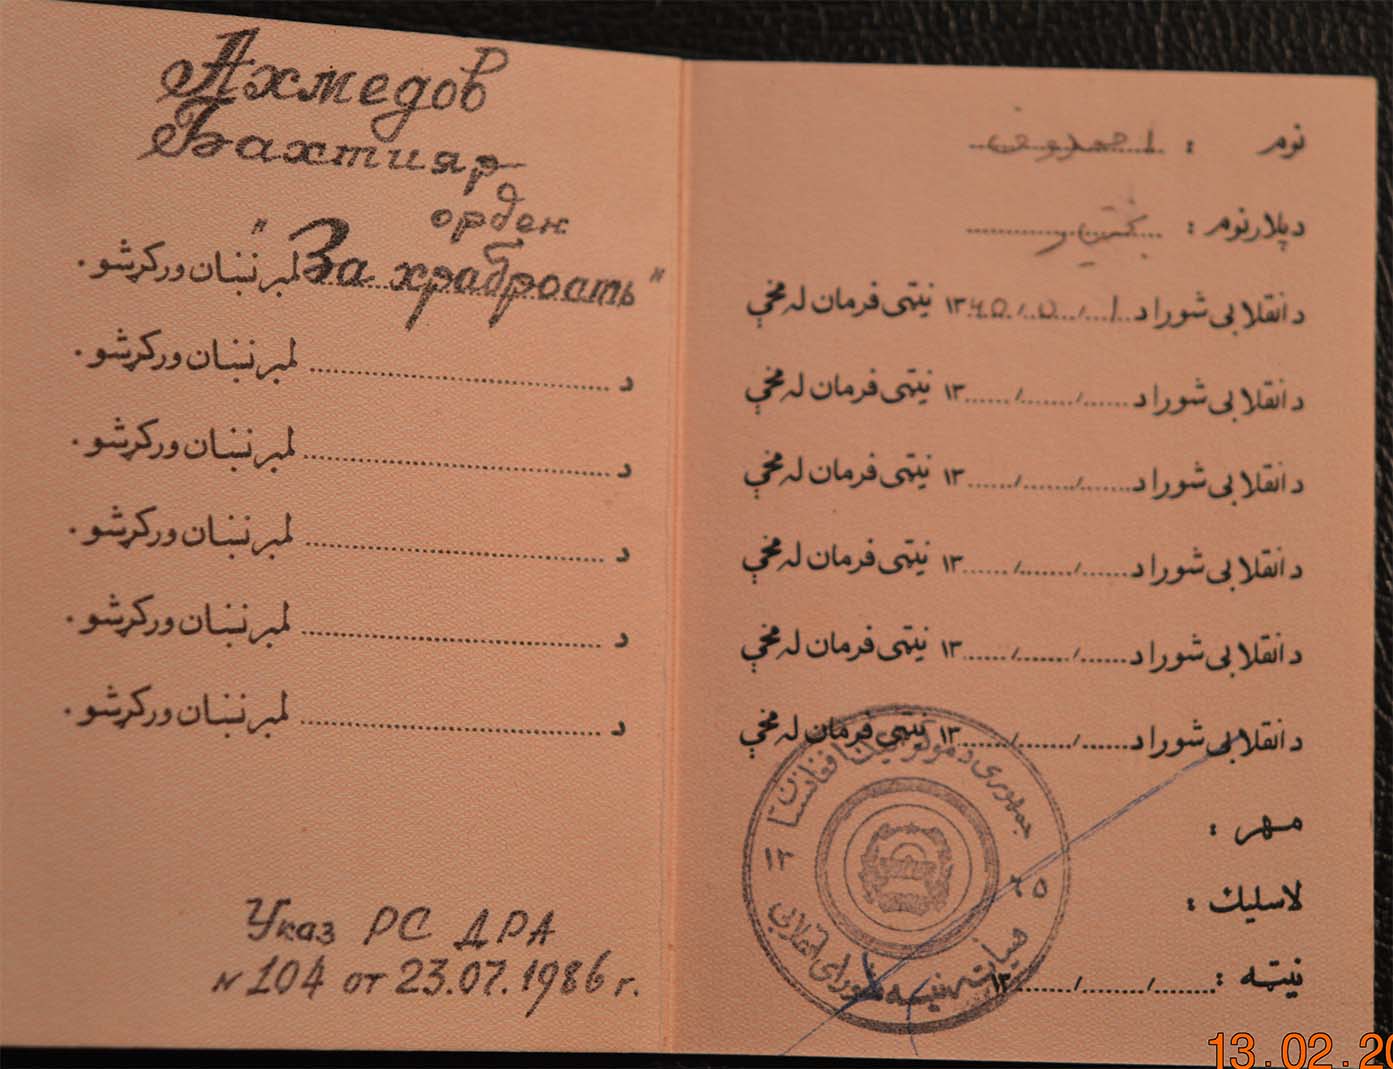 Ахмедов
Бахтияр
орден
"За храбрость"
لمبر نښان ورکړشو .
د ........ لمبر نښان ورکړشو .
د ........ لمبر نښان ورکړشو .
د ........ لمبر نښان ورکړشو .
د ........ لمبر نښان ورکړشو .
د ........ لمبر نښان ورکړشو .
Указ РС ДРА
N 104 от 23.07.1986 г.
نوم : احمدوف
د پلار نوم : بختیار
د انقلابی شورا د ١ / ٥ / ١٣٦٥ نیټی فرمان له مخې
د انقلابی شورا د ....../....../...... ١٣ نیټی فرمان له مخې
د انقلابی شورا د ....../....../...... ١٣ نیټی فرمان له مخې
د انقلابی شورا د ....../....../...... ١٣ نیټی فرمان له مخې
د انقلابی شورا د ....../....../...... ١٣ نیټی فرمان له مخې
د انقلابی شورا د ....../....../...... ١٣ نیټی فرمان له مخې
جمهوری دموکراتیک افغانستان
١٣ ٦٥
هیأت رئیسه شورای انقلابی
مهر :
لاسلیک :
نیټه : ....../....../...... ١٣
13.02.20